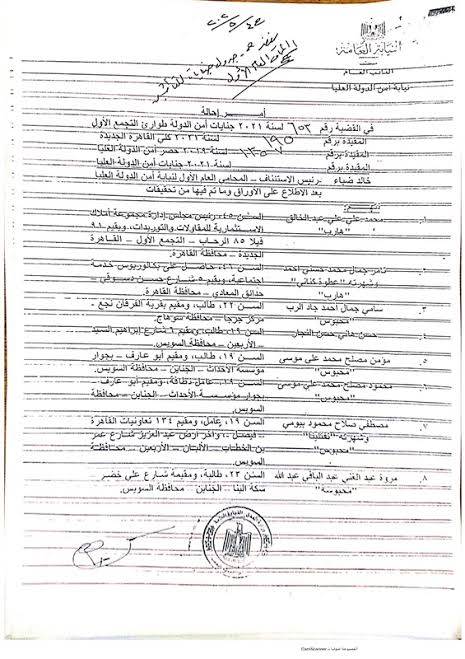 النيابة العامة
النائب العام
نيابة أمن الدولة العليا
أمر إحالة
في القضية رقم ٦٥٢ لسنة ٢٠٢١ جنايات أمن الدولة طوارئ التجمع الأول
المقيدة برقم لسنة ٢٠٢١ كلي القاهرة الجديدة
المقيدة برقم لسنة ٢٠١٩ حصر أمن الدولة العليا
المقيدة برقم لسنة ٢٠٢١ جنايات أمن الدولة العليا
خالد ضياء رئيس الاستئناف - المحامي العام الأول لنيابة أمن الدولة العليا
بعد الاطلاع على الأوراق وما تم فيها من تحقيقات
١. محمد علي علي عبد الخالق السن ٤٥، رئيس مجلس إدارة مجموعة أملاك
"هارب" الاستثمارية للمقاولات والتوريدات، ويقيم ٩١
فيلا ٨٥ الرحاب – التجمع الأول – القاهرة
الجديدة – محافظة القاهرة.
تامر جمال محمد حسني أحمد السن ٤١، حاصل على بكالوريوس خدمة
وشهرته "عطوة كناني" اجتماعية، ويقيم ٥ شارع حسن دسوقي –
"هارب" حدائق المعادي – محافظة القاهرة.
٣. سامي جمال أحمد جاد الرب السن ٢٢، طالب، ومقيم بقرية الفرقان نجع
"محبوس" مركز جرجا – محافظة سوهاج.
حسن هاني حسن النجار السن ١٩، طالب، ومقيم ٦ شارع إبراهيم السيد
– الأربعين – محافظة السويس.
٥. مؤمن مصلح محمد علي موسى السن ١٩، طالب، ومقيم أبو عارف – بجوار
"محبوس" مؤسسة الأحداث – الجناين – محافظة السويس.
محمود مصلح محمد علي موسى السن ١٩، عامل نظافة، ومقيم أبو عارف –
"محبوس" بجوار مؤسسة الأحداث – الجناين – محافظة
السويس.
٧. مصطفى صلاح محمود بيومي السن ١٩، عامل، ومقيم ١٣٤ تعاونيات القاهرة
– فيصل، وآخر أرض عبد العزيز شارع عمر
"محبوس" بن الخطاب – الألبان – الأربعين – محافظة
السويس.
٨. مروة عبد الغني عبد الباقي عبد الله السن ٢٣، طالبة، ومقيمة شارع علي خضير
"محبوسة" سكة البنا – الجناين – محافظة السويس.
الممسوحة ضوئيا بـ CamScanner